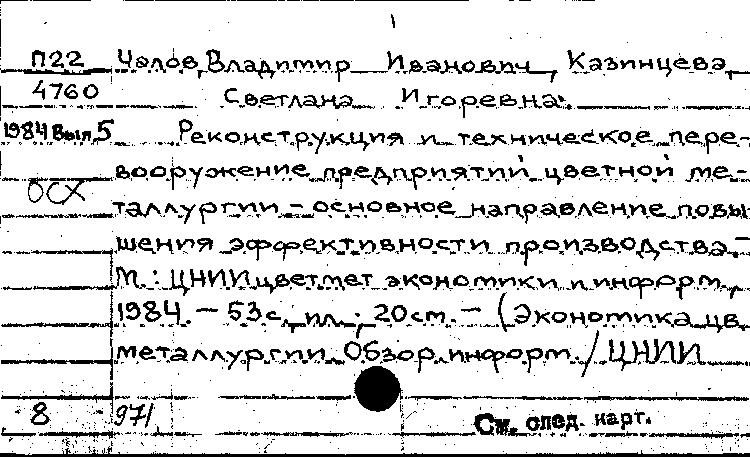 П22 Чалов, Владимир Иванович, Казинцева,
4760 Светлана Игоревна.
1984 Вып. 5 Реконструкция и техническое пере-
вооружение предприятий цветной ме-
ОСХ
таллургии – основное направление повы
шения эффективности производства. –
М.: ЦНИИцветмет экономики и информ.,
1984. – 53 с., ил.; 20 см. – (Экономика цв.
металлургии. Обзор. информ. / ЦНИИ
8 971 См. след. карт.